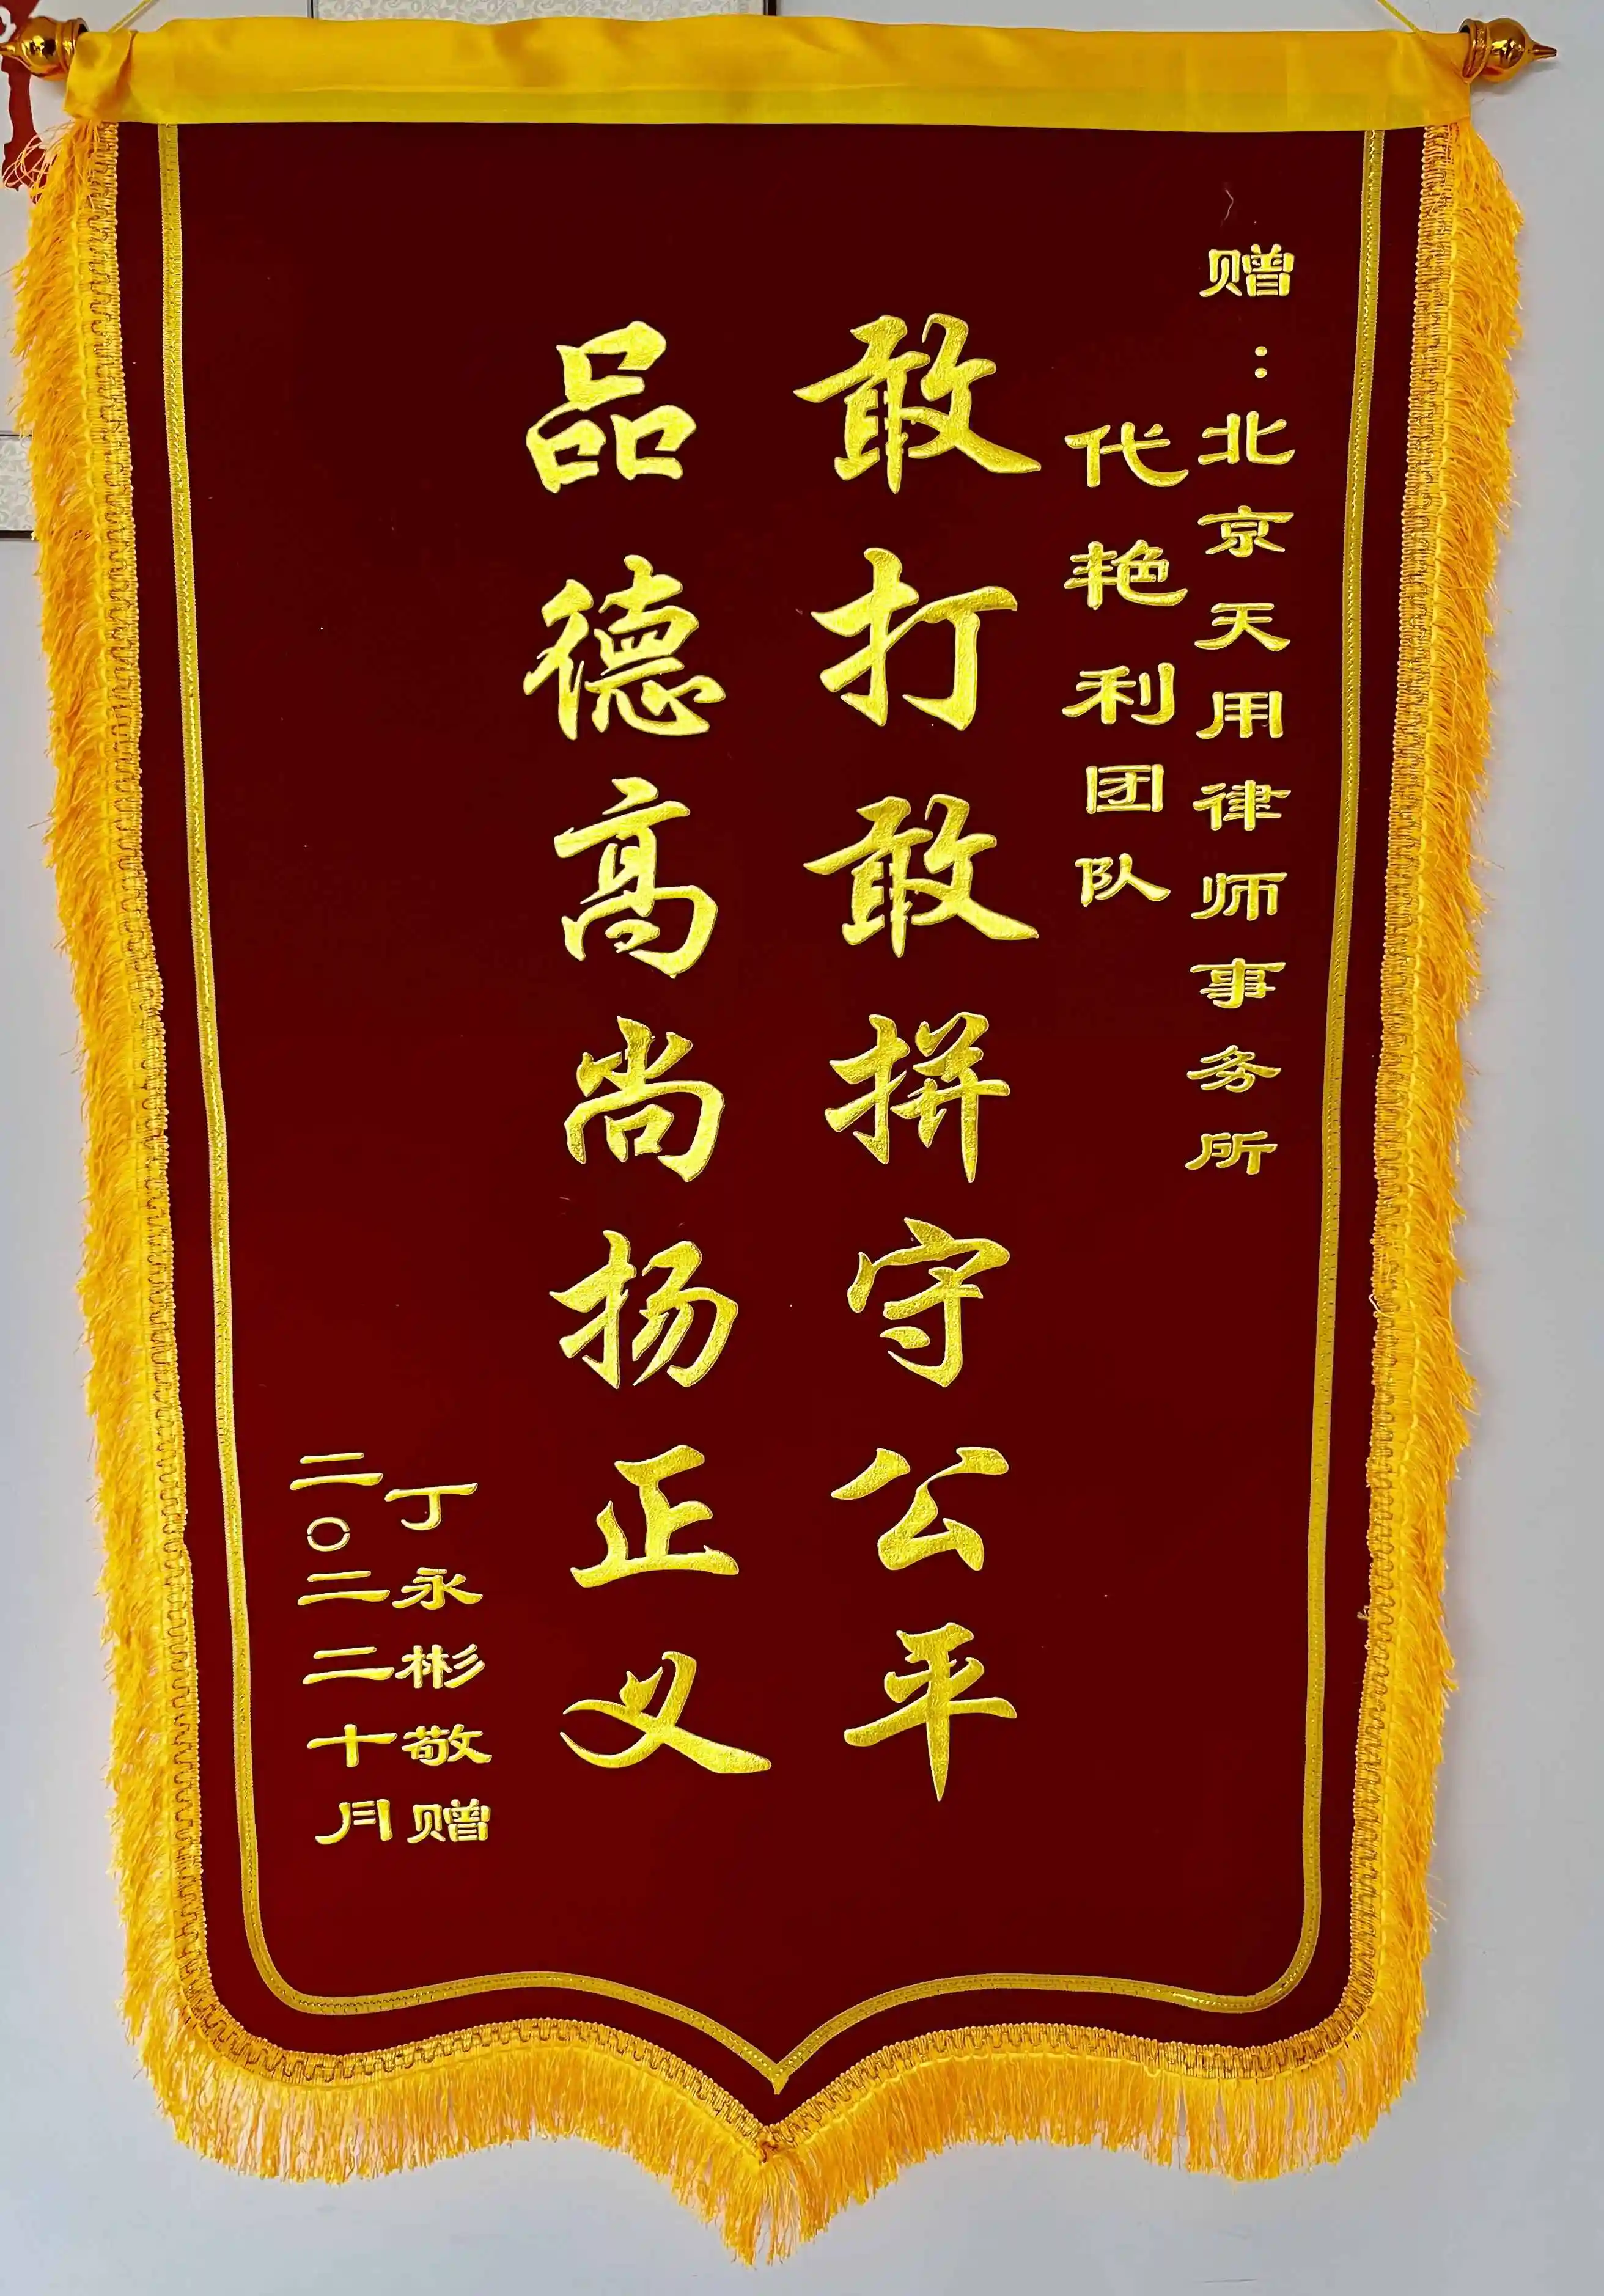 赠：北京天用律师事务所
代艳利团队
敢打敢拼守公平
品德高尚扬正义
丁永彬敬赠
二〇二二十月